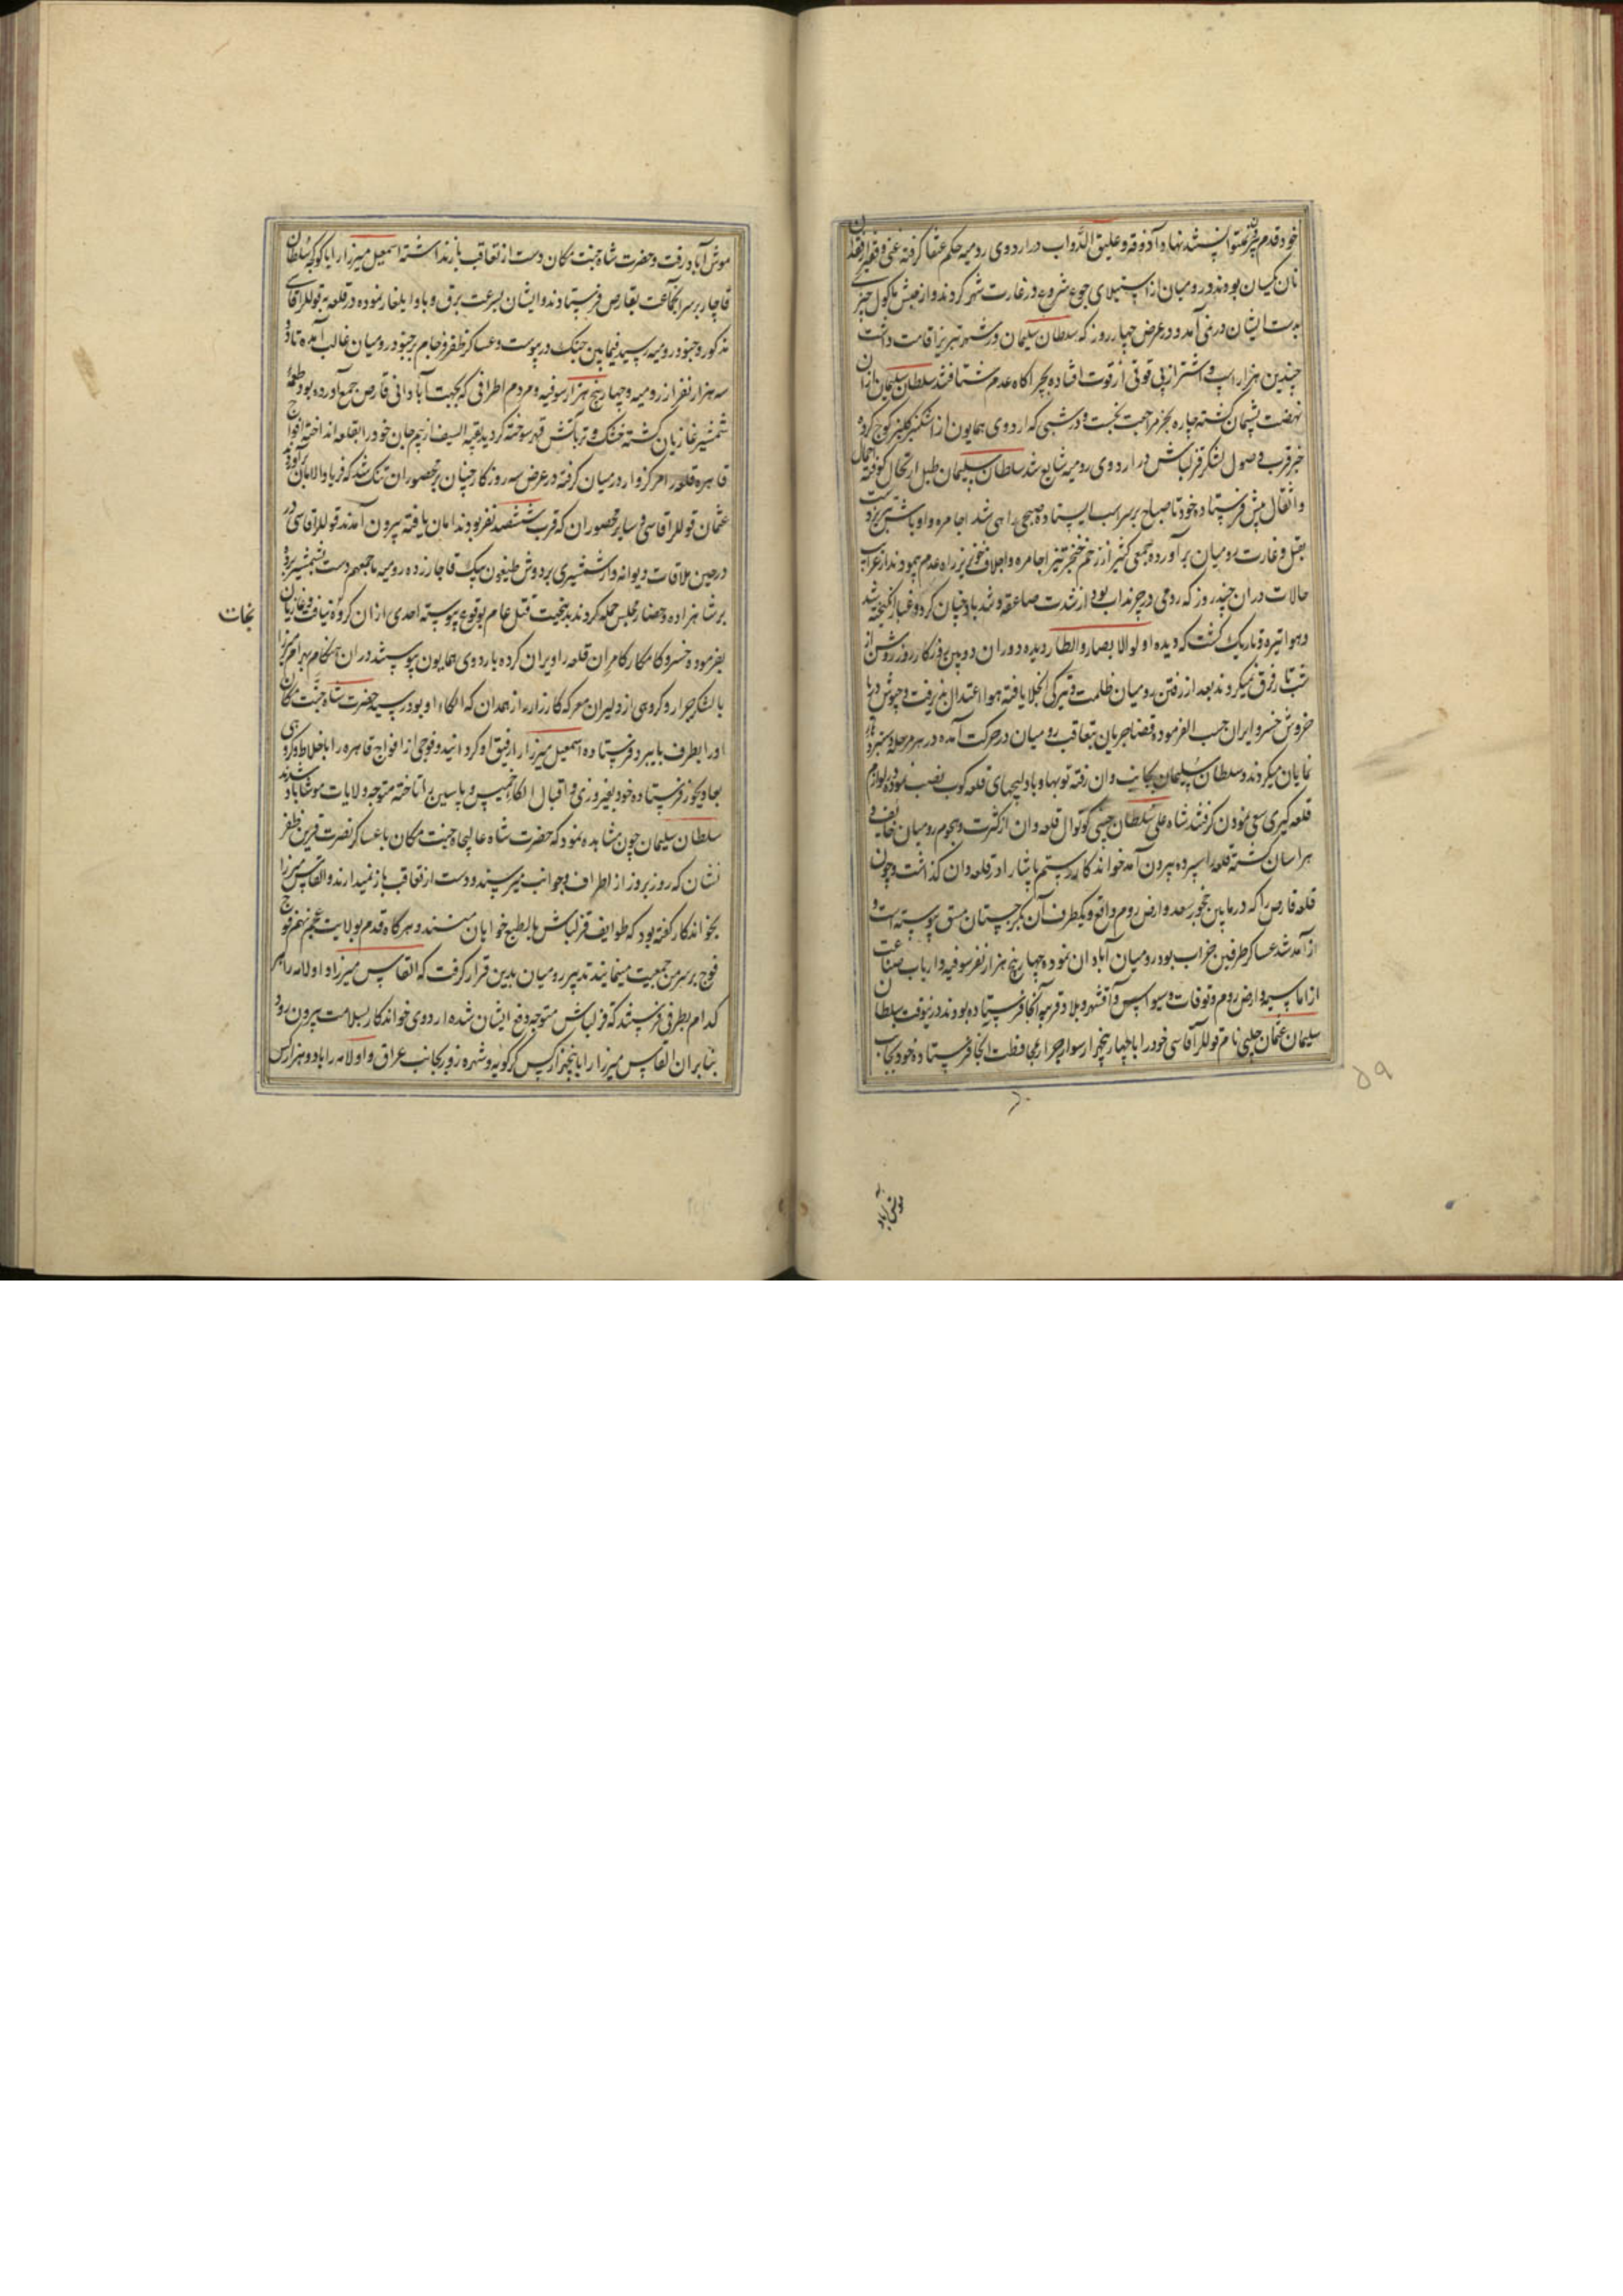 خود قدم بیرون نمیتوانستند نهاد و آذوقه و علیق الدواب در اردوی رومیه حکم عنقا گرفته غنی و فقیر از فقدان
نان یکسان بودند و رومیان از استیلای جوع شروع در غارت شهر کردند و از جنس ماکول چیزی
بدست ایشان در نمی آمد و در عرض چهار روز که سلطان سلیمان در شهر تبریز اقامت داشت
چندین هزار اسب و اشتر از بی قوتی از قوت افتاده بچراکاه عدم شتافتند سلطان سلیمان از ان
نهضت پشیمان کشته چاره بجز مراجعت نجست و در شبی که اردوی همایون از اشکنبر کلینر کوچ کرده
خبر قرب وصول لشکر قزلباش در اردوی رومیه شایع شد سلطان سلیمان طبل ارتحال کوفته احمال
و اثقال پیش فرستاده خود تا صباح بر سر اسب ایستاده صبحی راهی شد اجامره و اوباش تبریز دست
بقتل و غارت رومیان برآورده جمعی کثیر از زخم خنجر تیز اجامره و اجلاف خونریز راه عدم پیمودند از غرایب
حالات در ان چند روز که رومی در چرنداب بود از شدت صاعقه و شد باد چنان کرد و غبار انکیخته شد
و هوا تیره و تاریک کشت که دیده اولوالابصار و انظار دیده دوران دوربین روزکار روز روشن از
شب تار فرق نمیکردند بعد از رفتن رومیان ظلمت و تیرکی انجلا یافته هوا اعتدال پذیرفت و جیوش دریا
خروش خسرو ایران حسب الفرموده قضا جریان بتعاقب رومیان در حرکت آمده در هر مرحله دستبرد
نمایان میکردند و سلطان سلیمان بجانب وان رفته توبها و بادلیجهای قلعه کوب نصب نموده بلوازم
قلعه کیری سعی نمودن کرفتند شاه علی سلطان چپنی کوتوال قلعه وان از کثرت و هجوم رومیان خایف و
هراسان کشته قلعه را سپرده بیرون آمد خواندکار رستم پاشا را در قلعه وان کذاشت و چون
قلعه قارص را که در مابین نخجور سعد و ارض روم واقع و یکطرف آن بکرجستان مسق پیوسته است و
از آمد شد عساکر طرفین خراب بود رومیان آبادان نموده چهار پنج هزار نفر سوفیه و ارباب صناعت
از اماسیه و ارض روم و توقات و سیواس و آقشهر و بلاد قرمیه آنجا فرستاده بودند در نوقت سلطان
سلیمان عثمان چلبی نام قوللر آقاسی خود را با چهار پنجهزار سوار جرار بمحافظت انجا فرستاده خود بجانب
۵۹
موش آباد رفت و حضرت شاه جنت مکان دست از تعاقب باز نداشته اسمعیل میرزا را با کوکچه سلطان
قاجار بر سر انجماعت بقارص فرستادند و ایشان بسرعت برق و باد ایلغار نموده در قلعه به قوللر آقاسی
مذکور و جنود رومیه رسید فیمابین جنک در پیوست و عساکر ظفر فرجام بر جنود رومیان غالب آمده تا دو
سه هزار نفر از رومیه و چهار پنج هزار سوفیه و مردم اطراف که بجهت آبادانی قارص جمع آورده بود طعمه
شمشیر غازیان کشته خشک و تر باتش قهر سوخته کردید بقیه السیف از بیم جان خود را بقلعه انداختند افواج
قاهره قلعه را مرکزوار در میان کرفته در عرض سه روز کار چنان بر محصوران تنک شد که فریاد الامان برآورده
عثمان قوللر اقاسی و سایر محصوران که قرب ششصد نفر بودند امان یافته بیرون آمدند قوللر اقاسی در
در حین ملاقات دیوانه وار شمشیری بر دوش طیغون بیک قاجار زده رومیه ما جمعهم دست بشمشیر برده
بر شاهزاده و حضار مجلس حمله کردند بدینجهت قتل عام بوقوع پیوسته احدی از ان کروه نیافت و غازیان
نجات
بفرموده خسرو کامکار کامران قلعه را ویران کرده باردوی همایون پیوستند در ان هنکام بهرام میرزا
با لشکر جرار و کروهی از دلیران معرکه کارزار از همدان که الکاء او بود رسید حضرت شاه جنت مکان
او را بطرف بایبرد فرستاده اسمعیل میرزا را رفیق او کردانید و فوجی از افواج قاهره را باخلاط و کروهی
بعادیجوز فرستاده خود بفیروزی و اقبال الکاء خمیس و پاسین را تاخته متوجه ولایات موش آباد شدند
سلطان سلیمان چون مشاهده نمود که حضرت شاه عالیجاه جنت مکان با عساکر نصرت قرین ظفر
نشان که روز بروز از اطراف و جوانب میرسند و دست از تعاقب باز نمیدارند و القاس میرزا
بخواندکار کفته بود که طوایف قزلباش بالطبع خواهان منند و هر کاه قدم بولایت عجم نهم فوج
فوج بر سر من جمعیت مینمایند تدبیر رومیان بدین قرار کرفت که القاس میرزا و اولامه را هر
کدام بطرفی فرستند که قزلباش متوجه دفع ایشان شده اردوی خواندکار بسلامت بیرون رود
بنابران القاس میرزا را با پنجهزار کس کرکویه و شهره زور بجانب عراق و اولامه را با دو هزار کس